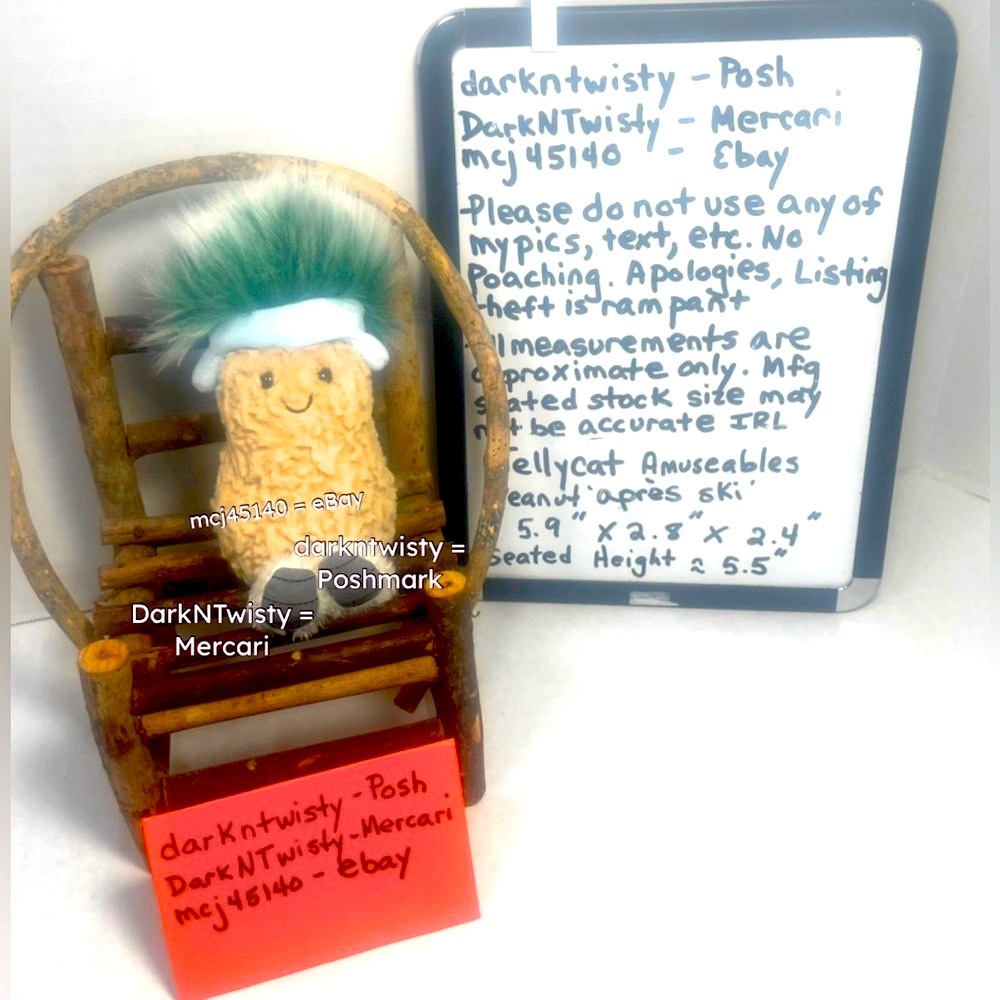 darkntwisty - Posh
DarkNTwisty - Mercari
mcj45140 - Ebay
Please do not use any of
my pics, text, etc. No
Poaching. Apologies, Listing
theft is rampant
All measurements are
approximate only. Mfg
stated stock size may
not be accurate IRL
Jellycat Amuseables
Peanut 'après ski'
5.9" X 2.8" X 2.4"
Seated Height ≈ 5.5"
mcj45140 = eBay
darkntwisty =
Poshmark
DarkNTwisty =
Mercari
darkntwisty - Posh
DarkNTwisty - Mercari
mcj45140 - ebay